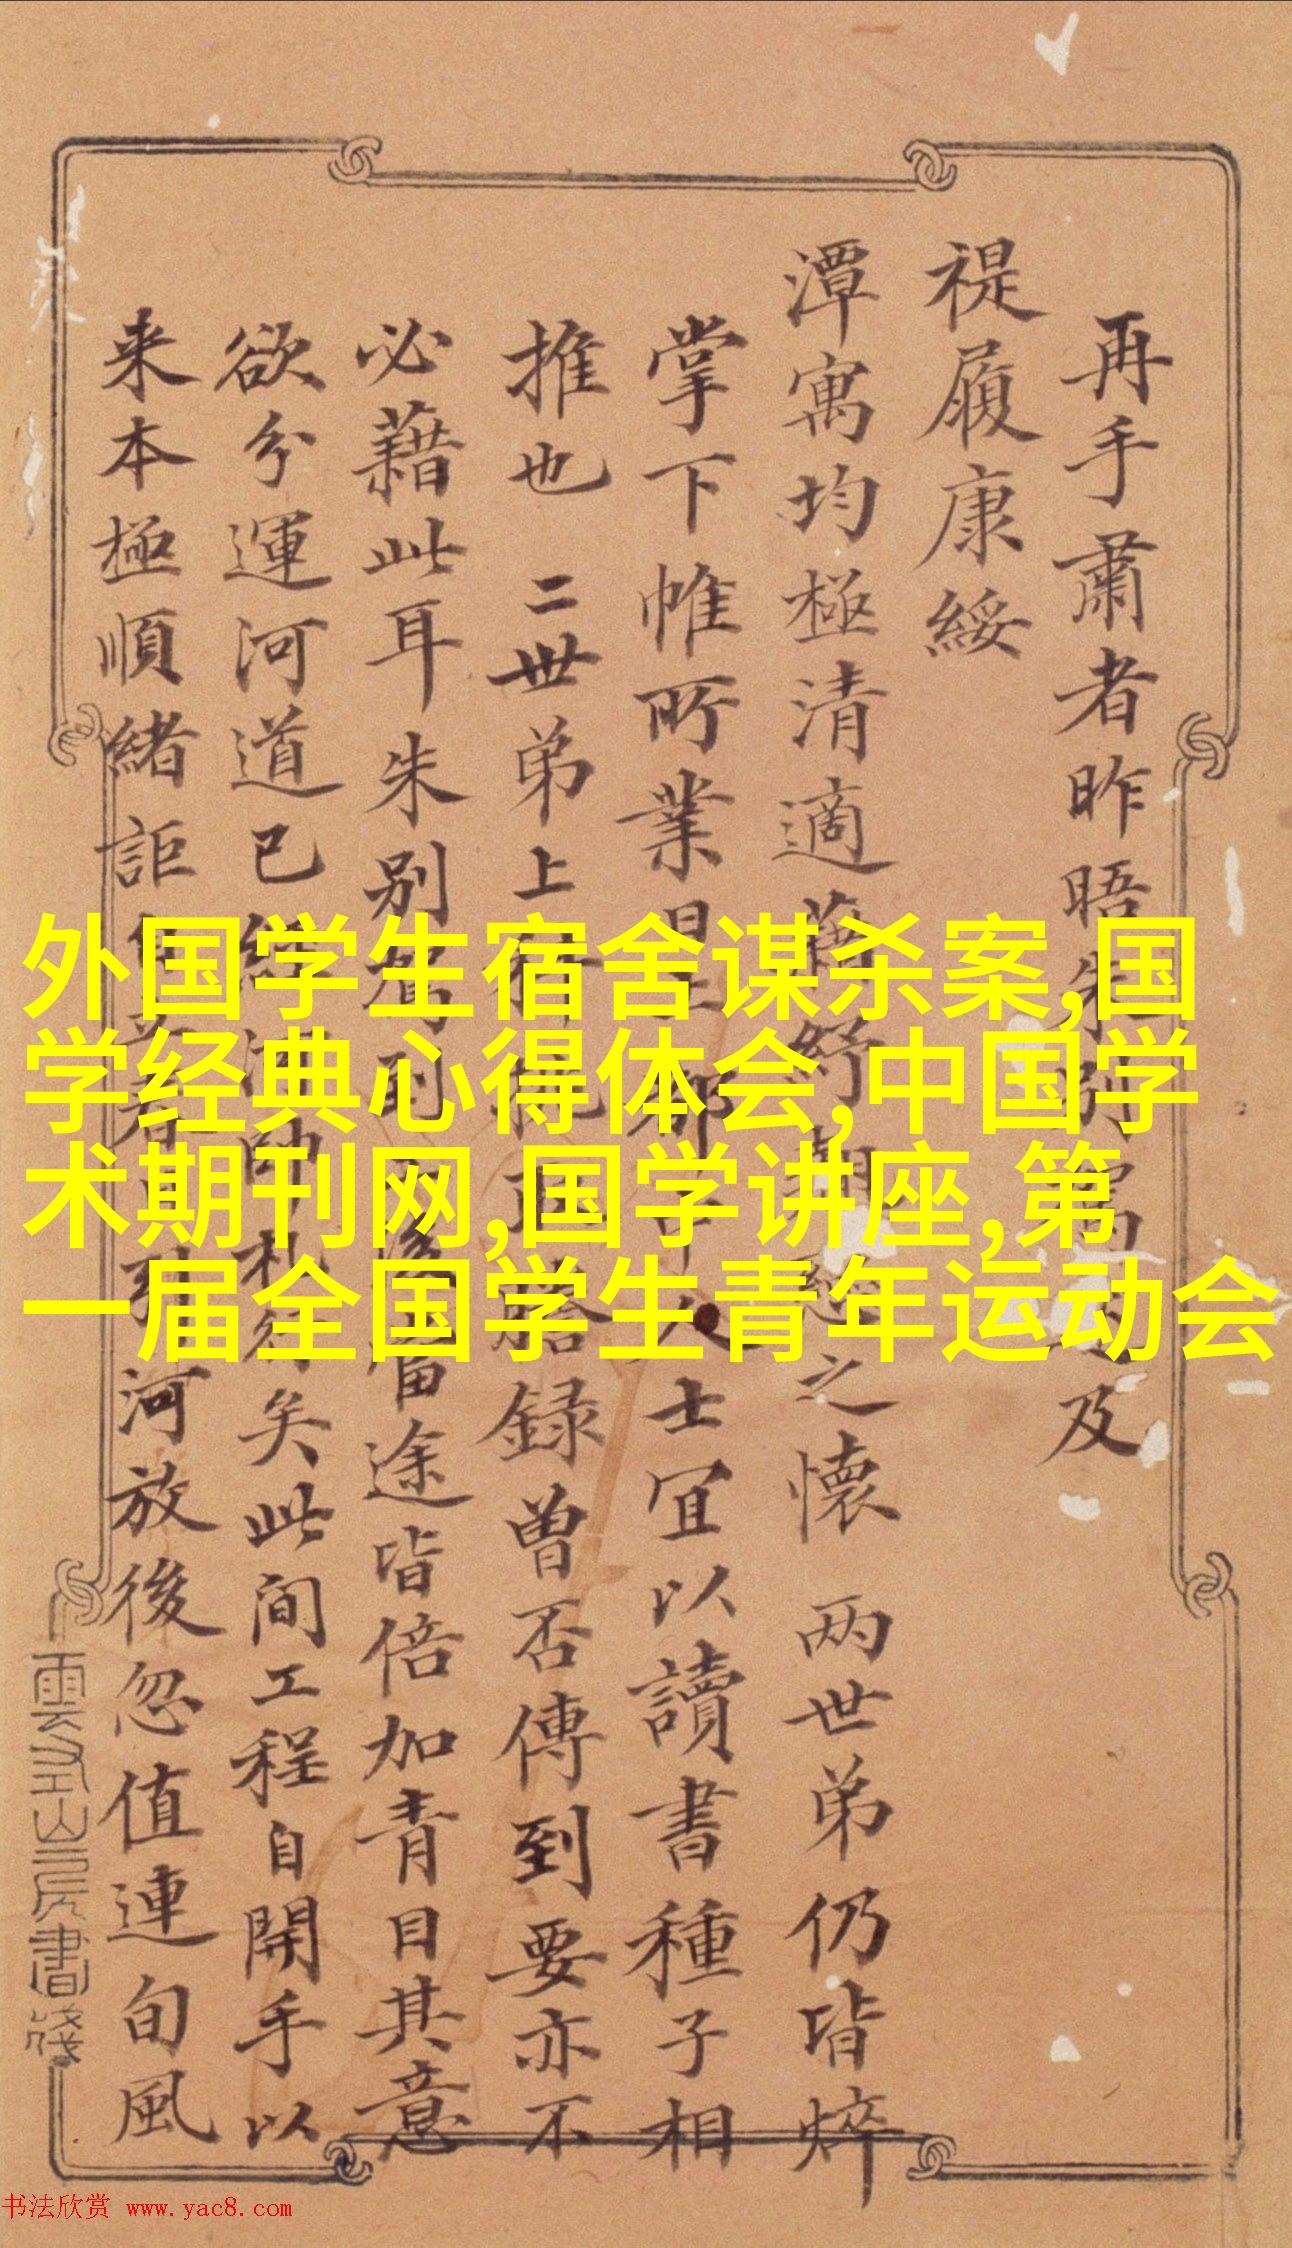 再手肅者昨晤朱別駕及
禔履康綏
潭寓均極清適藉紓之懷兩世弟仍皆焠
掌下帷所業士宜以讀書種子相
推也二世弟上錄曾否傳到要亦不
必藉此耳朱別駕到當途皆倍加青目其意
欲分運河道已經札行矣此間工程自開手以
来本極順緒詎河放後忽值連旬風
外国学生宿舍谋杀案,国
学经典心得体会,中国学
术期刊网,国学讲座,第
一届全国学生青年运动会
書箋
书法欣赏 www.yac8.com